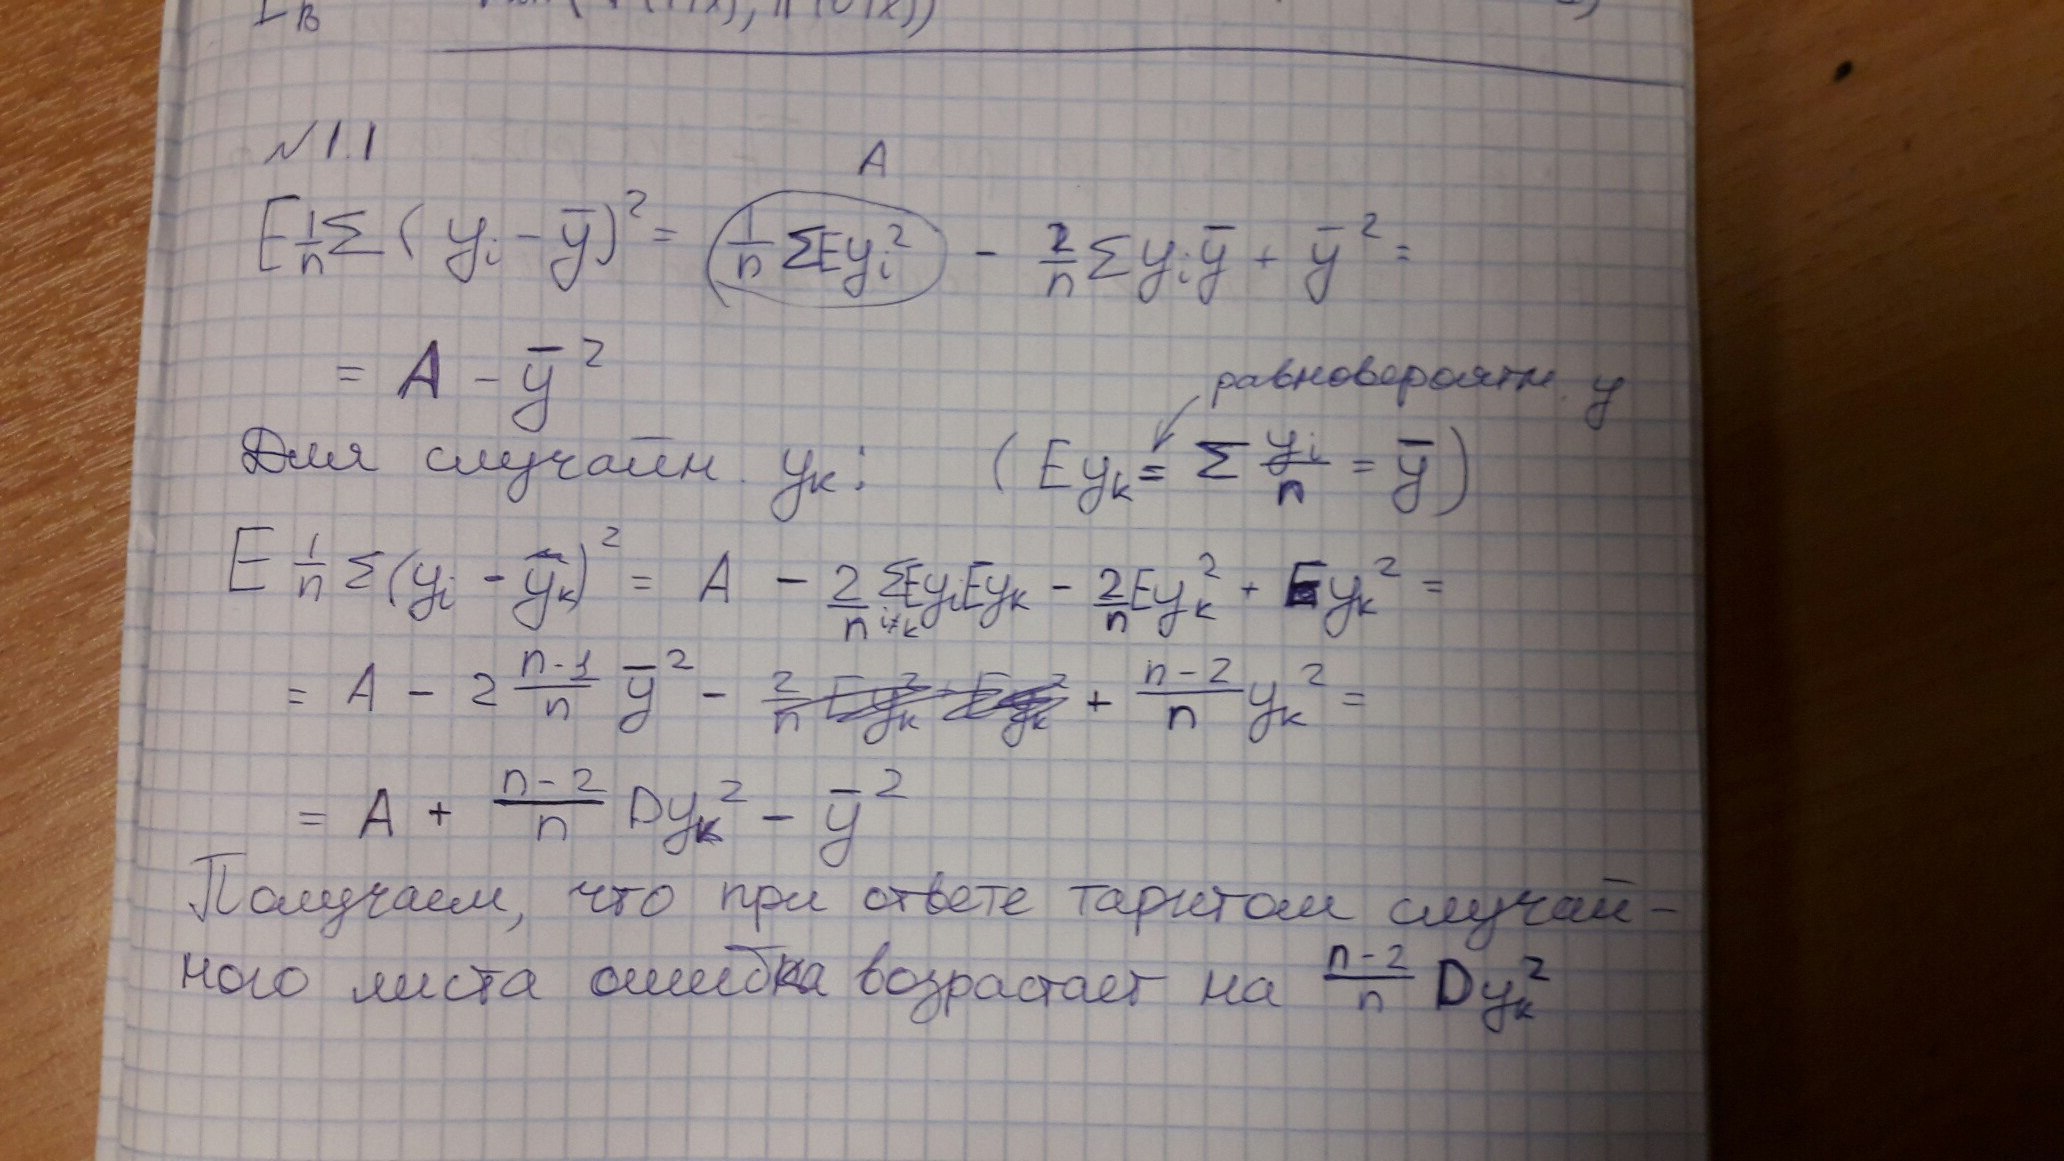 №1.1
A
E 1/n Σ (yᵢ - ȳ)² = 1/n ΣEyᵢ² - 2/n Σyᵢȳ + ȳ² =
= A - ȳ²
равновероятн. y
Для случайн. yₖ: (Eyₖ = Σ yᵢ/n = ȳ)
E 1/n Σ(yᵢ - yₖ)² = A - 2/n Σ_{i≠k} EyᵢEyₖ - 2/n Eyₖ² + Eyₖ² =
= A - 2 (n-1)/n ȳ² - + (n-2)/n yₖ² =
= A + (n-2)/n Dyₖ² - ȳ²
Получаем, что при ответе таргетом случай-
ного листа ошибка возрастает на (n-2)/n Dyₖ²